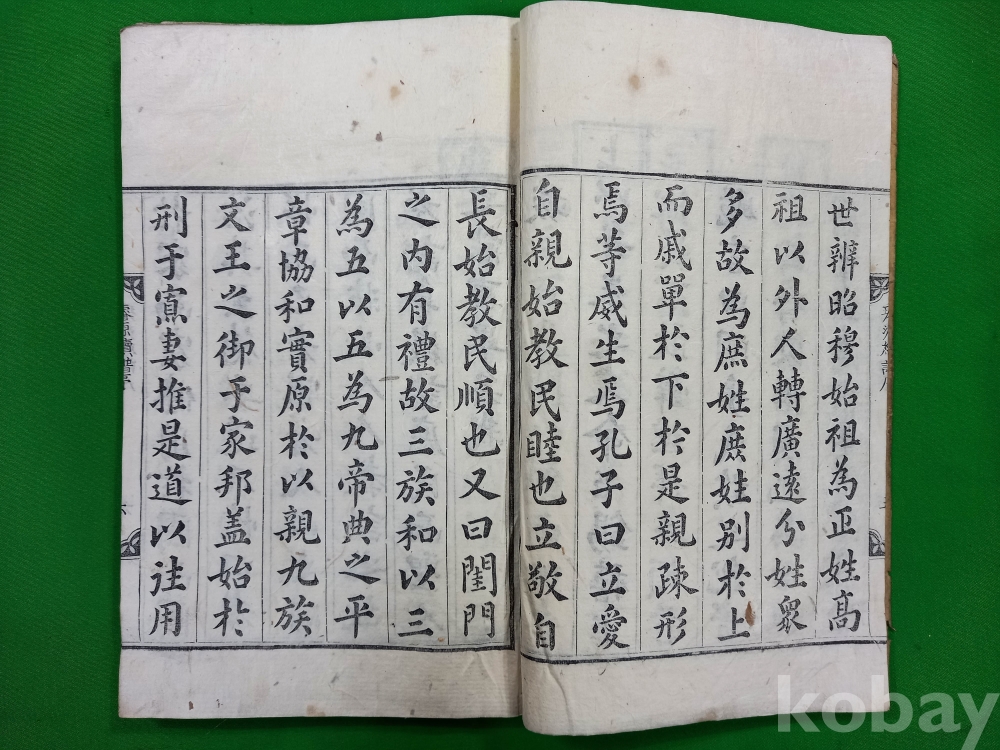 世辨昭穆始祖為正姓高
祖以外人轉廣遠分姓眾
多故為庶姓庶姓別於上
而戚單於下於是親疎形
焉等威生焉孔子曰立愛
自親始教民睦也立敬自
長始教民順也又曰閨門
之內有禮故三族和以三
為五以五為九帝典之平
章協和實原於以親九族
文王之御于家邦盖始於
刑于寡妻推是道以往用
kobay